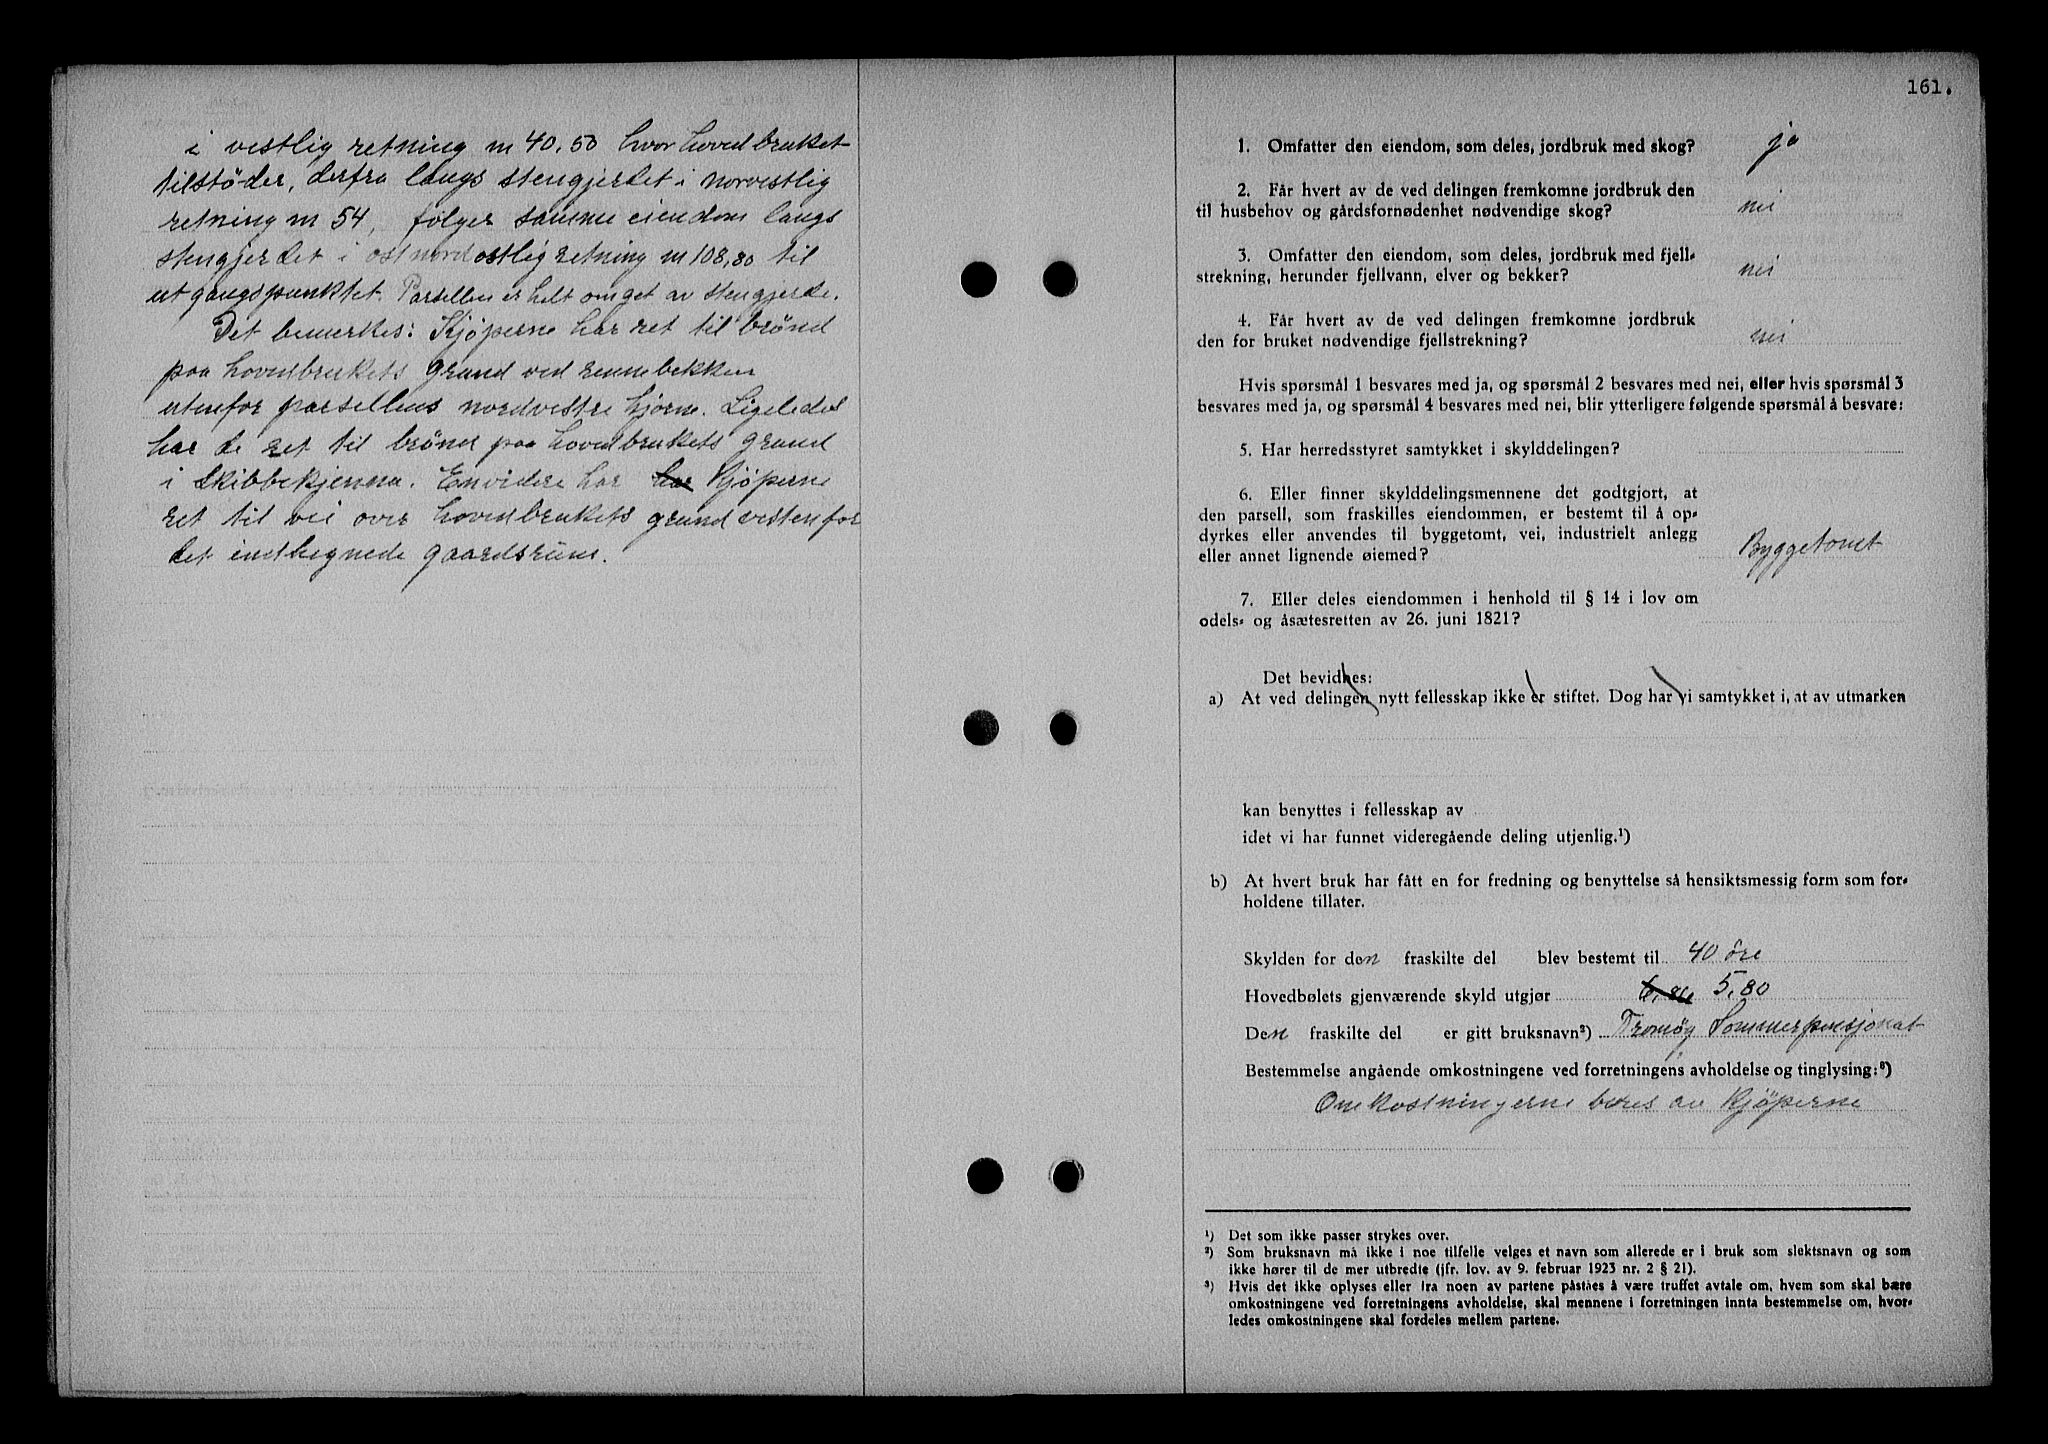 i vestlig retning m 40,50 hvor hovedbruket
tilstöder, derfra langs stengjerdet i norvestlig
retning m 54, følger samme eiendom langs
stengjerdet i ostnordostlig retning m 108,80 til
utgangspunktet. Parsellen er helt omget av stengjerde.
Det bemerkes: Kjøperne har ret til brönd
paa hovedbrukets grund ved rennebekken
utenfor parsellens nordvestre hjørne. Ligeledes
har de ret til brönd paa hovedbrukets grund
i Skibbekjenna. Envidere har har Kjøperne
ret til vei over hovedbrukets grund vestenfor
det indhegnede gaardsrum.
161.
1. Omfatter den eiendom, som deles, jordbruk med skog? ja
2. Får hvert av de ved delingen fremkomne jordbruk den
til husbehov og gårdsfornødenhet nødvendige skog? nei
3. Omfatter den eiendom, som deles, jordbruk med fjell-
strekning, herunder fjellvann, elver og bekker? nei
4. Får hvert av de ved delingen fremkomne jordbruk
den for bruket nødvendige fjellstrekning? nei
Hvis spørsmål 1 besvares med ja, og spørsmål 2 besvares med nei, eller hvis spørsmål 3
besvares med ja, og spørsmål 4 besvares med nei, blir ytterligere følgende spørsmål å besvare:
5. Har herredsstyret samtykket i skylddelingen?
6. Eller finner skylddelingsmennene det godtgjort, at
den parsell, som fraskilles eiendommen, er bestemt til å op-
dyrkes eller anvendes til byggetomt, vei, industrielt anlegg
eller annet lignende øiemed? Byggetomt
7. Eller deles eiendommen i henhold til § 14 i lov om
odels- og åsætesretten av 26. juni 1821?
Det bevidnes:
a) At ved delingen nytt fellesskap ikke er stiftet. Dog har vi samtykket i, at av utmarken
kan benyttes i fellesskap av
idet vi har funnet videregående deling utjenlig.¹)
b) At hvert bruk har fått en for fredning og benyttelse så hensiktsmessig form som for-
holdene tillater.
Skylden for den fraskilte del blev bestemt til 40 öre
Hovedbølets gjenværende skyld utgjør 5,80
Den fraskilte del er gitt bruksnavn²) Tromøy Sommerpensjonat
Bestemmelse angående omkostningene ved forretningens avholdelse og tinglysing:³)
Omkostningerne bæres av Kjöperne
¹) Det som ikke passer strykes over.
²) Som bruksnavn må ikke i noe tilfelle velges et navn som allerede er i bruk som slektsnavn og som
ikke hører til de mer utbredte (jfr. lov. av 9. februar 1923 nr. 2 § 21).
³) Hvis det ikke oplyses eller fra noen av partene påståes å være truffet avtale om, hvem som skal bære
omkostningene ved forretningens avholdelse, skal mennene i forretningen innta bestemmelse om, hvor-
ledes omkostningene skal fordeles mellem partene.